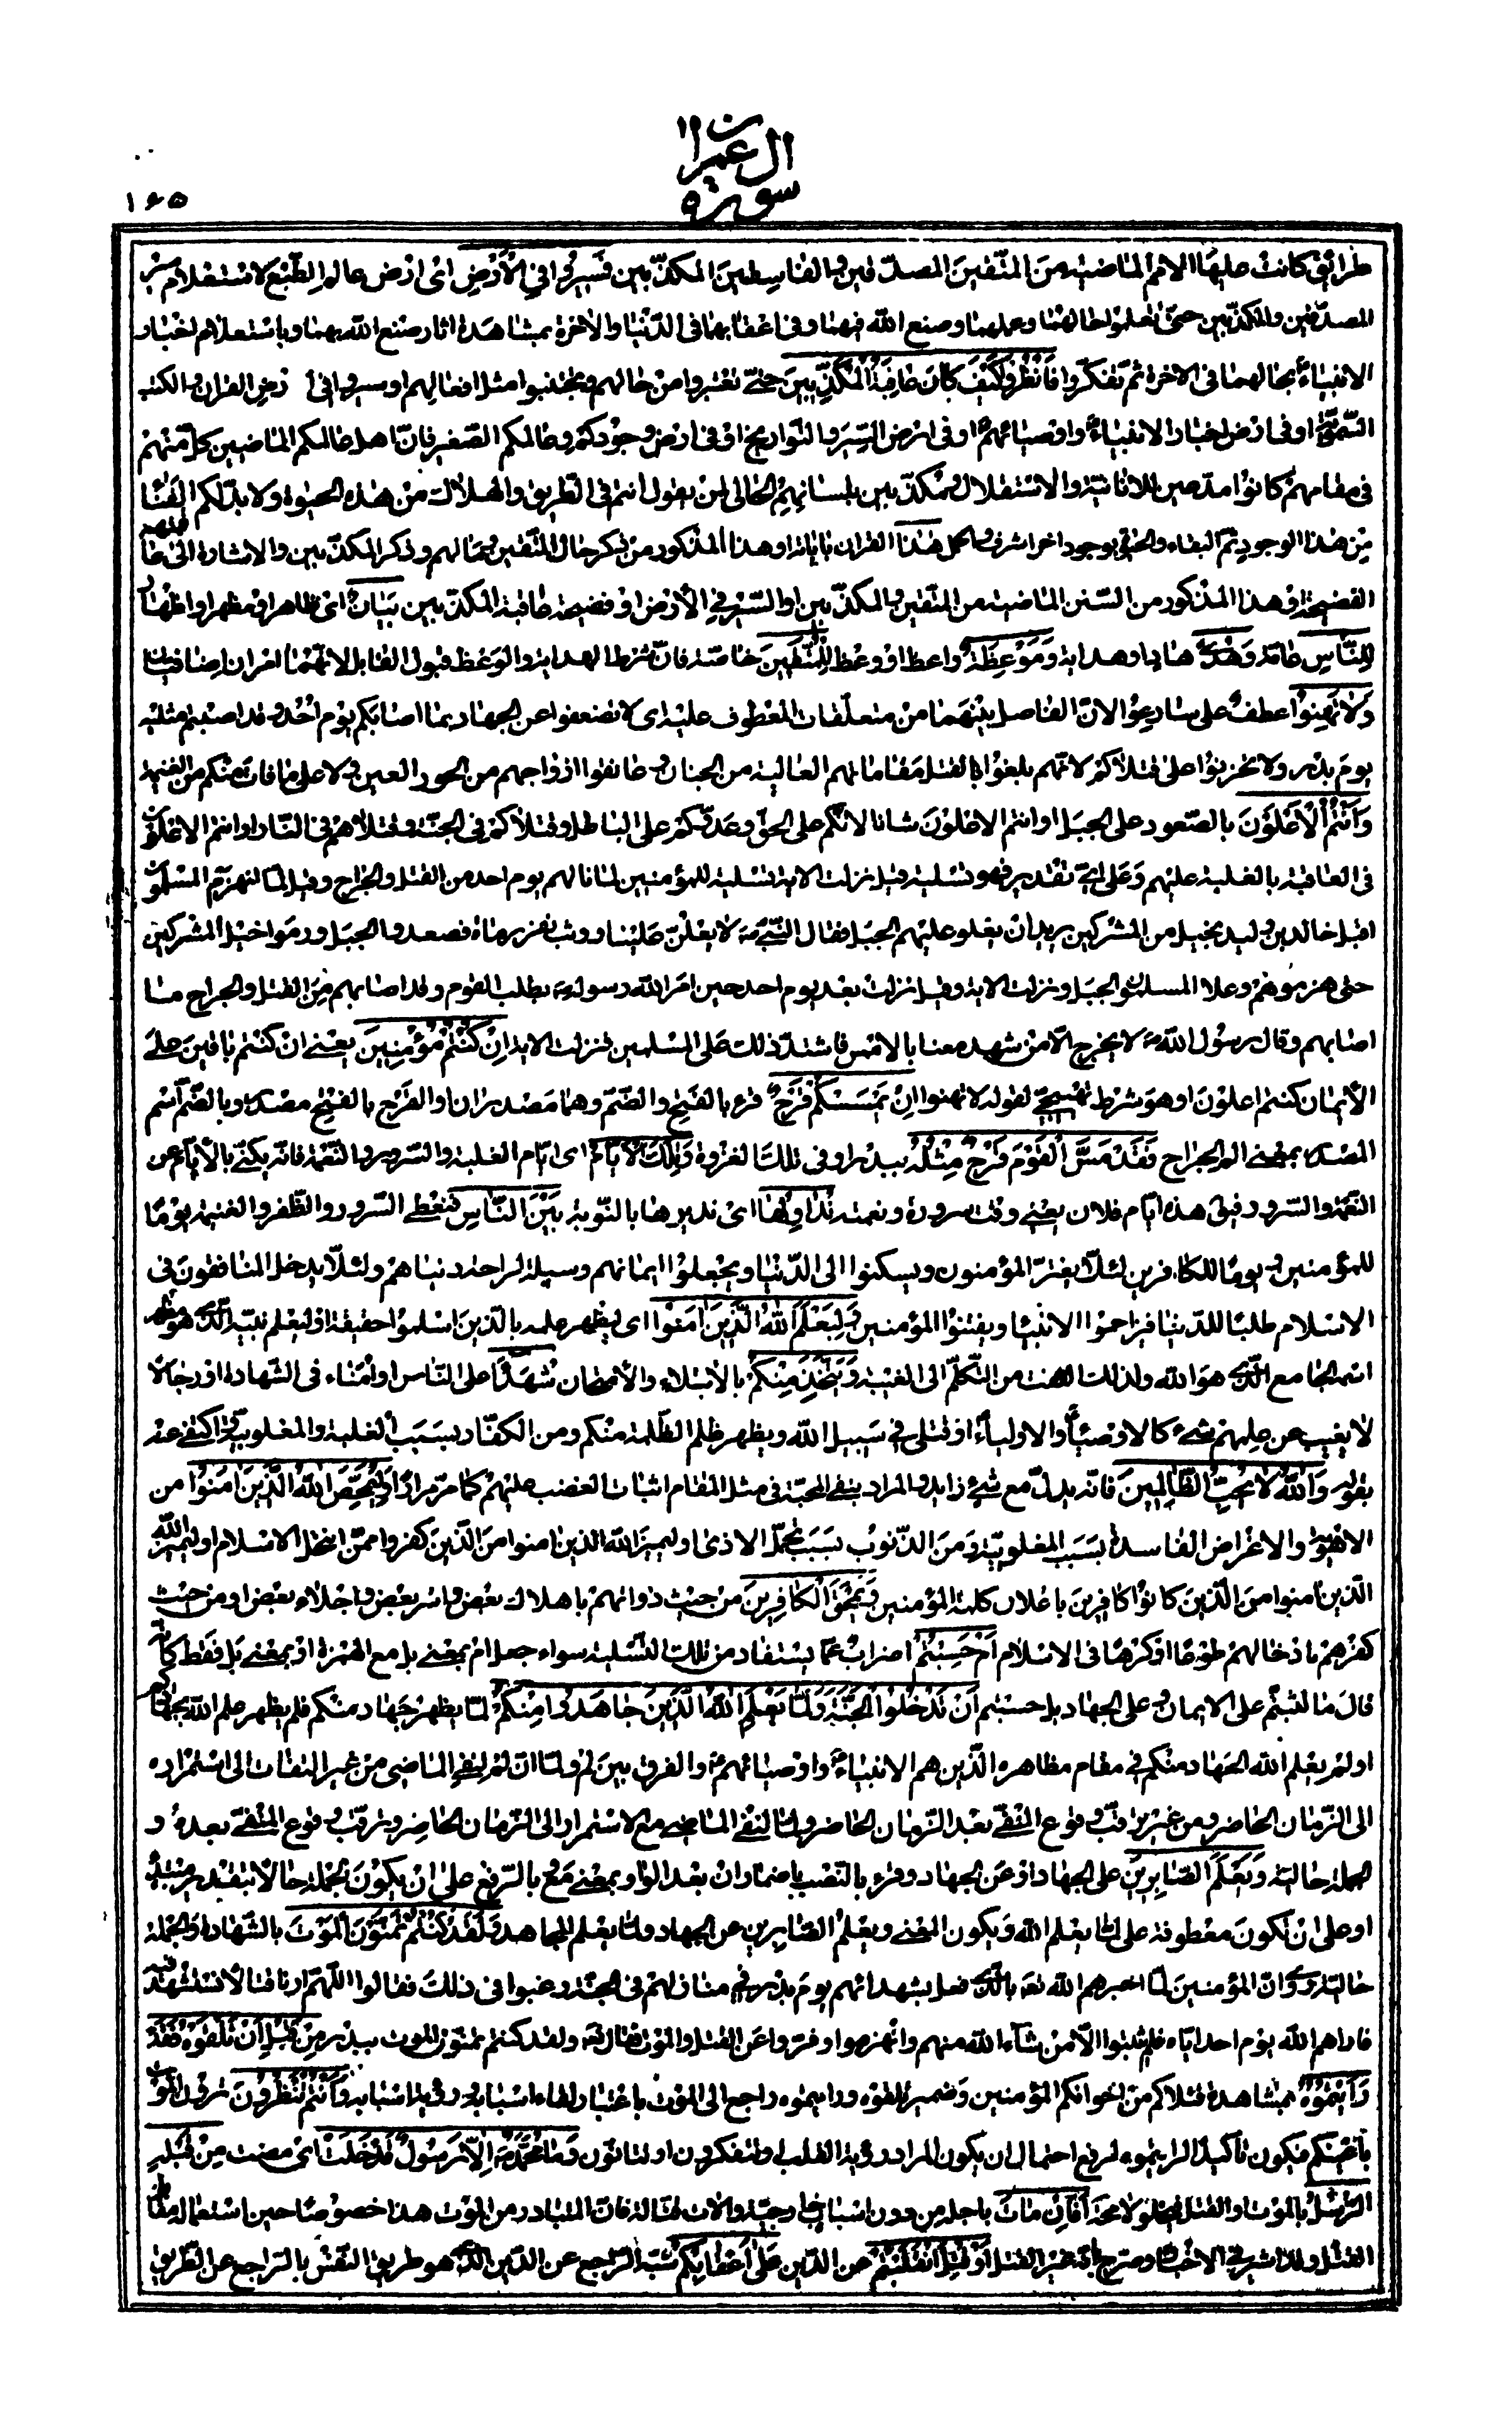 سورة آل عمران
١٦٥
طرائق كانت عليها الامم الماضية من المتقين المصدقين والفاسقين المكذبين فَسِيرُوا فِي الْأَرْضِ اى ارض عالم الطبع لاستعلام سير
المصدقين والمكذبين حتى تعلموا حالهما وعملهما وصنع الله فيهما وفى اعقابهما فى الدنيا والآخرة بمشاهدة آثار صنع الله بهما وباستعلام اخبار
الانبياء بحالهما فى الآخرة ثم تفكروا فَانْظُرُوا كَيْفَ كَانَ عَاقِبَةُ الْمُكَذِّبِينَ حتى تعتبروا من حالهم وتجتنبوا مثل افعالهم او سيروا فى ارض القرآن والكتب
السماوية او فى ارض اخبار الانبياء واوصيائهم او فى ارض السير والتواريخ او فى ارض وجودكم وعالمكم الصغير فان اهل عالمكم الماضين كل منهم
فى مقامهم كانوا مدعين للانانية والاستقلال مكذبين بلسانهم الحالى لمن يقول انتم فى الطريق والهلاك من هذه الحيوة ولا بد لكم الفناء
من هذا الوجود ثم البقاء والحيوة بوجود آخر اشرف واكمل هَذَا القرآن بآياته او هذا المذكور من ذكر حال المتقين ومآلهم وذكر المكذبين والاشارة الى عاقبتهم
الفضيحة او هذا المذكور من السنن الماضية من المتقين والمكذبين او السير فى الارض او فضيحة عاقبة المكذبين بَيَانٌ اى ظاهر او مظهر او اظهار
لِلنَّاسِ عامة وَهُدًى هاد او هداية وَمَوْعِظَةٌ واعظ او وعظ لِلْمُتَّقِينَ خاصة فان شرط الهداية والوعظ قبول القابل لانهما امران اضافيان
وَلَا تَهِنُوا عطف على سارعوا لان الفاصل بينهما من متعلقات المعطوف عليه اى لا تضعفوا عن الجهاد بما اصابكم يوم احد وقد اصبتم مثليه
يوم بدر ولا تحزنوا على قتلاكم لانهم بلغوا بالقتل مقاماتهم العالية من الجنان وعانقوا ازواجهم من الحور العين ولا على ما فات منكم من الغنيمة
وَأَنْتُمُ الْأَعْلَوْنَ بالصعود على الجبل او انتم الاعلون شانا لانكم على الحق وعدوكم على الباطل وقتلاكم فى الجنة وقتلاهم فى النار او انتم الاعلون
فى العاقبة بالغلبة عليهم وعلى اى تقدير فهو تسلية قيل نزلت الآية تسلية للمؤمنين لما نالهم يوم احد من القتل والجراح وقيل لما انهزم المسلمون
اقبل خالد بن وليد بخيل من المشركين يريد ان يعلو عليهم الجبل فقال النبى ص لا يعلن علينا ووثب نفر رماة فصعدوا الجبل ورموا خيل المشركين
حتى هزموهم وعلا المسلمون الجبل ونزلت الآية وقيل نزلت بعد يوم احد حين امر الله رسوله بطلب القوم وقد اصابهم من القتل والجراح ما
اصابهم وقال رسول الله ص لا يخرج الا من شهد معنا بالامس فاشتد ذلك على المسلمين فنزلت الآية إِنْ كُنْتُمْ مُؤْمِنِينَ يعنى ان كنتم باقين على
الايمان كنتم اعلون او هو شرط تهييجى لقوله لا تهنوا إِنْ يَمْسَسْكُمْ قَرْحٌ قرء بالفتح والضم وهما مصدران او القرح بالفتح مصدر وبالضم اسم
المصدر بمعنى الم الجراح فَقَدْ مَسَّ الْقَوْمَ قَرْحٌ مِثْلُهُ ببدر او فى تلك الغزوة وَتِلْكَ الْأَيَّامُ اى ايام الغلبة والسرور والنقمة فانه يكنى بالايام عن
النقمة والسرور فيق هذه ايام فلان يعنى وقت سروره ونعمته نُدَاوِلُهَا اى نديرها بالنوبة بَيْنَ النَّاسِ فنعطى السرور والظفر والغنيمة يوما
للمؤمنين ويوما للكافرين لئلا يغتر المؤمنون ويسكنوا الى الدنيا ويجعلوا ايمانهم وسيلة لراحة دنياهم ولئلا يدخل المنافقون فى
الاسلام طلبا للدنيا فيزاحموا الانبياء ويفتنوا المؤمنين وَلِيَعْلَمَ اللَّهُ الَّذِينَ آمَنُوا اى ليظهر علمه بالذين اسلموا حقيقة او ليعلم نبيه الذى هو مظهر
اسمه الجامع الذى هو الله ولذلك التفت من التكلم الى الغيبة وَيَتَّخِذَ مِنْكُمْ بالابتلاء والامتحان شُهَدَاءَ على الناس او امناء فى الشهادة او رجالا
لا يغيب عن علمهم شىء كالاوصياء والاولياء او قتلى فى سبيل الله ويظهر ظلم الظلمة منكم ومن الكفار بسبب الغلبة والمغلوبية واكتفى عنه
بقوله وَاللَّهُ لَا يُحِبُّ الظَّالِمِينَ فانه يدل مع شىء زايد والمراد بنفى المحبة فى مثل المقام اثبات الغضب عليهم كما مر مرارا وَلِيُمَحِّصَ اللَّهُ الَّذِينَ آمَنُوا من
الاهوية والاغراض الفاسدة بسبب المغلوبية ومن الذنوب بسبب تحمل الاذى او ليميز الله الذين آمنوا من الذين كفروا ممن انتحل الاسلام او ليميز الله
الذين آمنوا من الذين كانوا كافرين باعلان كلمة المؤمنين وَيَمْحَقَ الْكَافِرِينَ من حيث ذواتهم باهلاك بعض واسر بعض واجلاء بعض او من حيث
كفرهم بادخالهم طوعا او كرها فى الاسلام أَمْ حَسِبْتُمْ اضراب عما يستفاد من تلك التسلية سواء جعل ام بمعنى بل مع الهمزة او بمعنى بل فقط كأنه
قال ما ثبتم على الايمان وعلى الجهاد بل حسبتم أَنْ تَدْخُلُوا الْجَنَّةَ وَلَمَّا يَعْلَمِ اللَّهُ الَّذِينَ جَاهَدُوا مِنْكُمْ لما يظهر جهاد منكم فلم يظهر علم الله بجهادكم
او لم يعلم الله الجهاد منكم فى مقام مظاهره الذين هم الانبياء واوصيائهم والفرق بين لم ولما ان لم لنفى الماضى من غير التفات الى استمراره
الى الزمان الحاضر ومن غير ترقب وقوع المنفى بعد الزمان الحاضر ولما لنفى الماضى مع الاستمرار الى الزمان الحاضر وترقب وقوع المنفى بعده و
الجملة حالية وَيَعْلَمَ الصَّابِرِينَ على الجهاد او عن الجهاد وقرء بالنصب باضمار ان بعد الواو بمعنى مع وبالرفع على ان يكون الجملة حالا بتقدير مبتدء
او على ان تكون معطوفة على لما يعلم الله ويكون المعنى ويعلم الصابرين عن الجهاد ولما يعلم المجاهد وَلَقَدْ كُنْتُمْ تَمَنَّوْنَ الْمَوْتَ بالشهادة والجملة
حالية روى ان المؤمنين لما اخبرهم الله تعالى بالذى فعل بشهدائهم يوم بدر فى منازلهم فى الجنة رغبوا فى ذلك فقالوا اللهم ارنا قتالا نستشهد فيه
فاراهم الله يوم احد اياه فلم يثبتوا الا من شاء الله منهم وانهزموا وفروا عن القتل والموت فقال تعالى ولقد كنتم تمنون الموت ببدر مِنْ قَبْلِ أَنْ تَلْقَوْهُ فَقَدْ
رَأَيْتُمُوهُ بمشاهدة قتلاكم من اخوانكم المؤمنين وضمير تلقوه ورايتموه راجع الى الموت باعتبار لقاء اسبابه ورؤية اسبابه وَأَنْتُمْ تَنْظُرُونَ ترون الموت
باعينكم فيكون تأكيدا لرايتموه لرفع احتمال ان يكون المراد رؤية القلب او تتفكرون او تتأنون وَمَا مُحَمَّدٌ إِلَّا رَسُولٌ قَدْ خَلَتْ اى مضت مِنْ قَبْلِهِ
الرُّسُلُ بالموت او القتل فيخلو لا محة أَفَإِنْ مَاتَ باجله من دون اسباب خارجية والات قتالة فان المتبادر من الموت هذا خصوصا حين استعماله مقابل
القتل ولذا اشير فى الاخبار وصرح بانه غير القتل أَوْ قُتِلَ انْقَلَبْتُمْ عن الدين عَلَى أَعْقَابِكُمْ شبه الراجع عن الدين الذى هو طريق النفس بالراجع عن الطريق